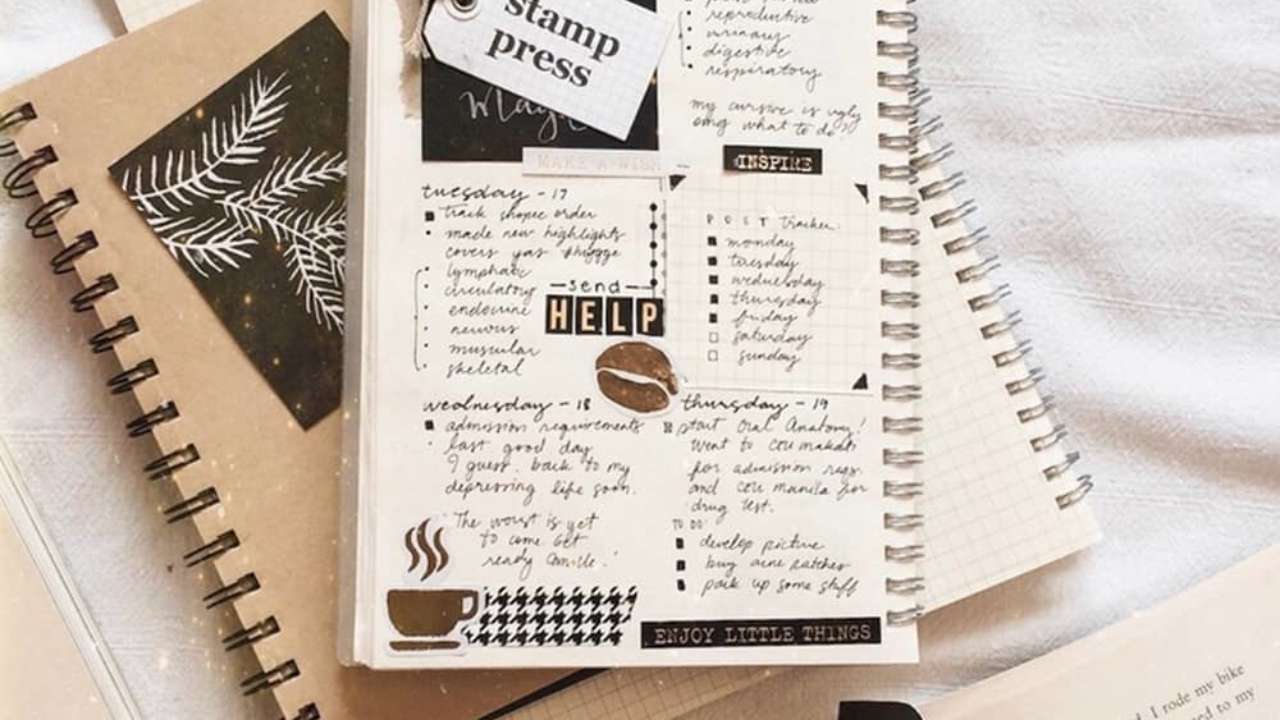 stamp
press
Magic
MAKE A WISH
tuesday - 17
track shopee order
made new highlights
covers yas #hygge
lymphatic
circulatory
endocrine
nervous
muscular
skeletal
send
HELP
wednesday - 18
admission requirements
last good day
I guess. back to my
depressing life soon.
The worst is yet
to come Get
ready
reproductive
urinary
digestive
respiratory
my cursive is ugly
omg what to do?
INSPIRE
POST tracker:
monday
tuesday
wednesday
thursday
friday
saturday
sunday
thursday - 19
start Oral Anatomy!
went to ceu makati
for admission reqs.
and ceu manila for
drug test.
TO DO:
develop picture
buy some
pack up some stuff
ENJOY LITTLE THINGS
I rode my bike
to my